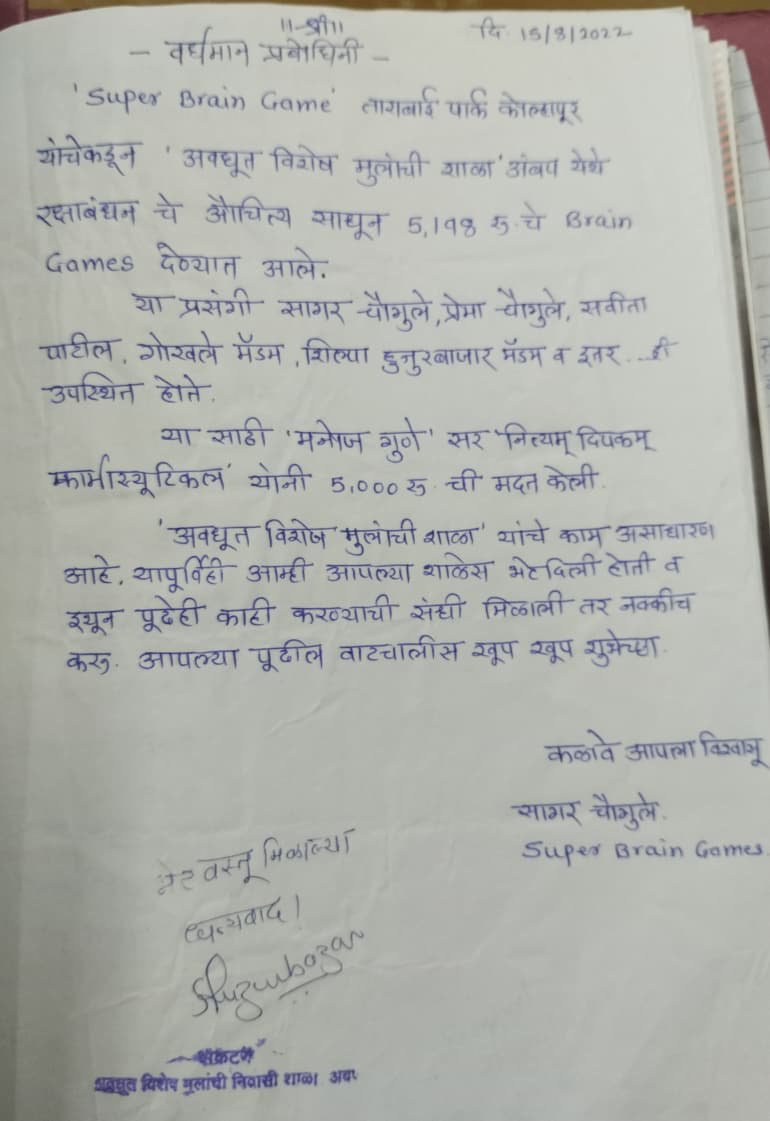 ॥श्री॥
दि. 15/8/2022
- वर्धमान प्रबोधिनी -
'Super Brain Game' ताराबाई पार्क कोल्हापूर
यांचेकडून 'अवधूत विशेष मुलांची शाळा' अंबप येथे
रक्षाबंधन चे औचित्य साधून 5,198 रु. चे Brain
Games देण्यात आले.
या प्रसंगी सागर चौगुले, प्रेमा चौगुले, सविता
पाटील, गोखले मॅडम, शिल्पा हुजुरबाजार मॅडम व इतर
उपस्थित होते.
या साठी 'मनोज गुणे' सर 'नित्यम् दिपकम्
फार्मास्यूटिकल' यांनी 5,000 रु. ची मदत केली.
'अवधूत विशेष मुलांची शाळा' यांचे काम असाधारण
आहे. यापूर्विही आम्ही आपल्या शाळेस भेट दिली होती व
इथून पूढेही काही करण्याची संधी मिळाली तर नक्कीच
करु. आपल्या पूढील वाटचालीस खूप खूप शुभेच्छा.
कळावे आपला विश्वासू
सागर चौगुले.
Super Brain Games.
भेट वस्तू मिळाल्या
धन्यवाद!
अवधुत विशेष मुलांची निवासी शाळा अंबप